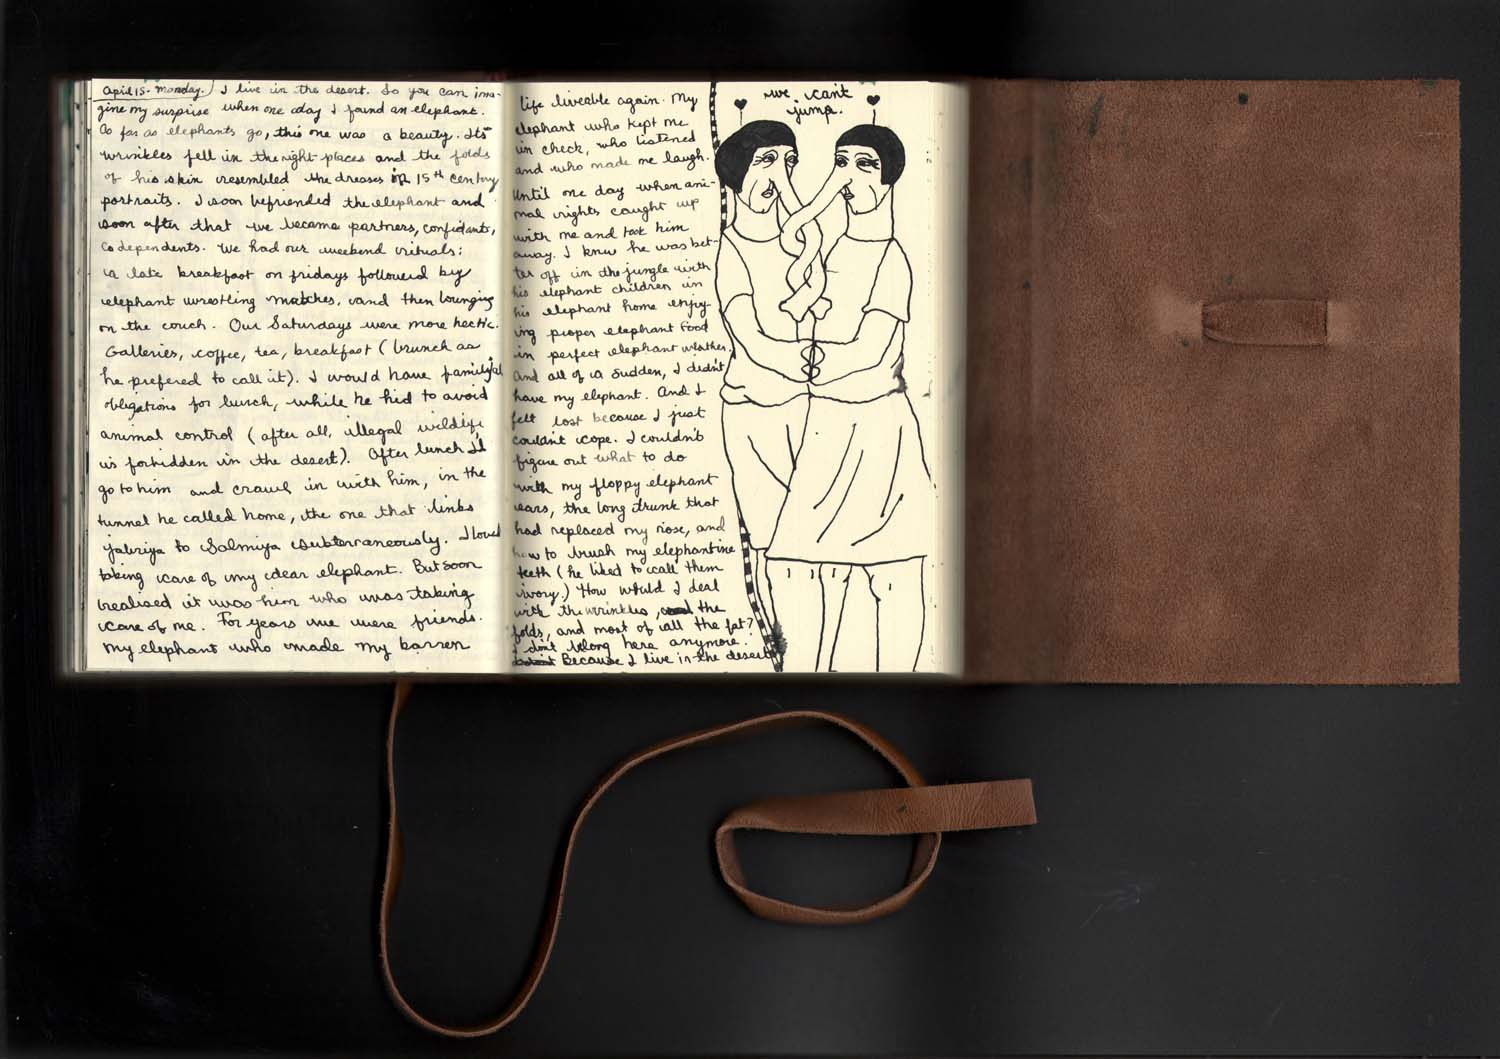 April 15 - Monday. I live in the desert. So you can ima-
gine my surprise when one day I found an elephant.
As far as elephants go, this one was a beauty. Its
wrinkles fell in the right places and the folds
of his skin resembled the dresses in 15th century
portraits. I soon befriended the elephant and
soon after that we became partners, confidants,
codependents. We had our weekend rituals:
a late breakfast on fridays followed by
elephant wrestling matches, and then lounging
on the couch. Our Saturdays were more hectic.
Galleries, coffee, tea, breakfast (brunch as
he prefered to call it). I would have familial
obligations for lunch, while he hid to avoid
animal control (after all, illegal wildlife
is forbidden in the desert). After lunch I'd
go to him and crawl in with him, in the
tunnel he called home, the one that links
Jabriya to Salmiya subterraneously. I loved
taking care of my dear elephant. But soon
realised it was him who was taking
care of me. For years we were friends.
My elephant who made my barren
life liveable again. My
elephant who kept me
in check, who listened
and who made me laugh.
Until one day when ani-
mal rights caught up
with me and took him
away. I knew he was bet-
ter off in the jungle with
his elephant children in
his elephant home enjoy-
ing proper elephant food
in perfect elephant weather.
And all of a sudden, I didn't
have my elephant. And I
felt lost because I just
couldn't cope. I couldn't
figure out what to do
with my floppy elephant
ears, the long trunk that
had replaced my nose, and
how to brush my elephantine
teeth (he liked to call them
ivory.) How would I deal
with the wrinkles, the
folds, and most of all the fat?
I don't belong here anymore.
Because I live in the desert
we can't
jump.